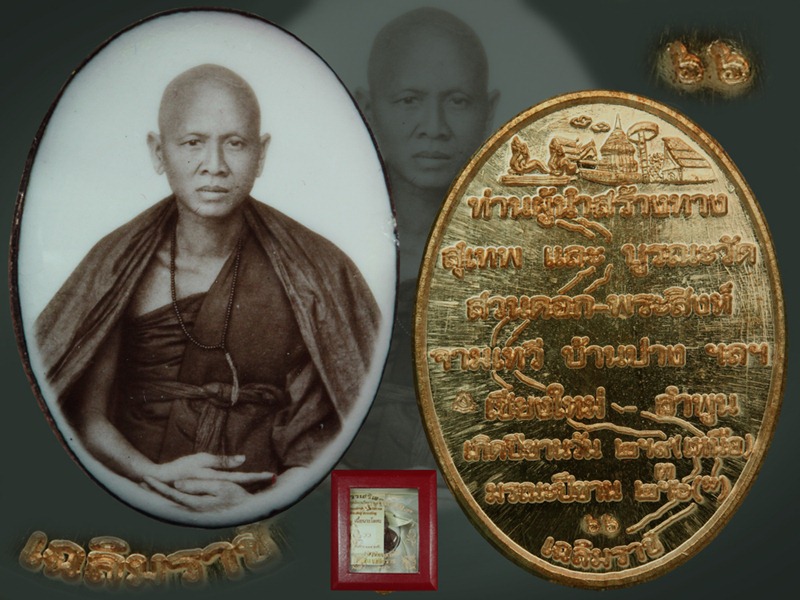 ๖๖
ท่านผู้นำสร้างทาง
สุเทพ และ บูรณะวัด
สวนดอก-พระสิงห์
จามเทวี บ้านปาง ฯลฯ
เชียงใหม่ – ลำพูน
เกิดปีขาลวัน ๒ ๙(เหนือ)
มรณะปีขาล
๖๖
เฉลิมราช
เฉลิมราช